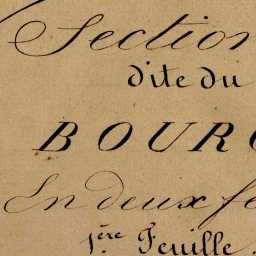 Section
dite du
BOURG
En deux fe
1.ère Feuille.